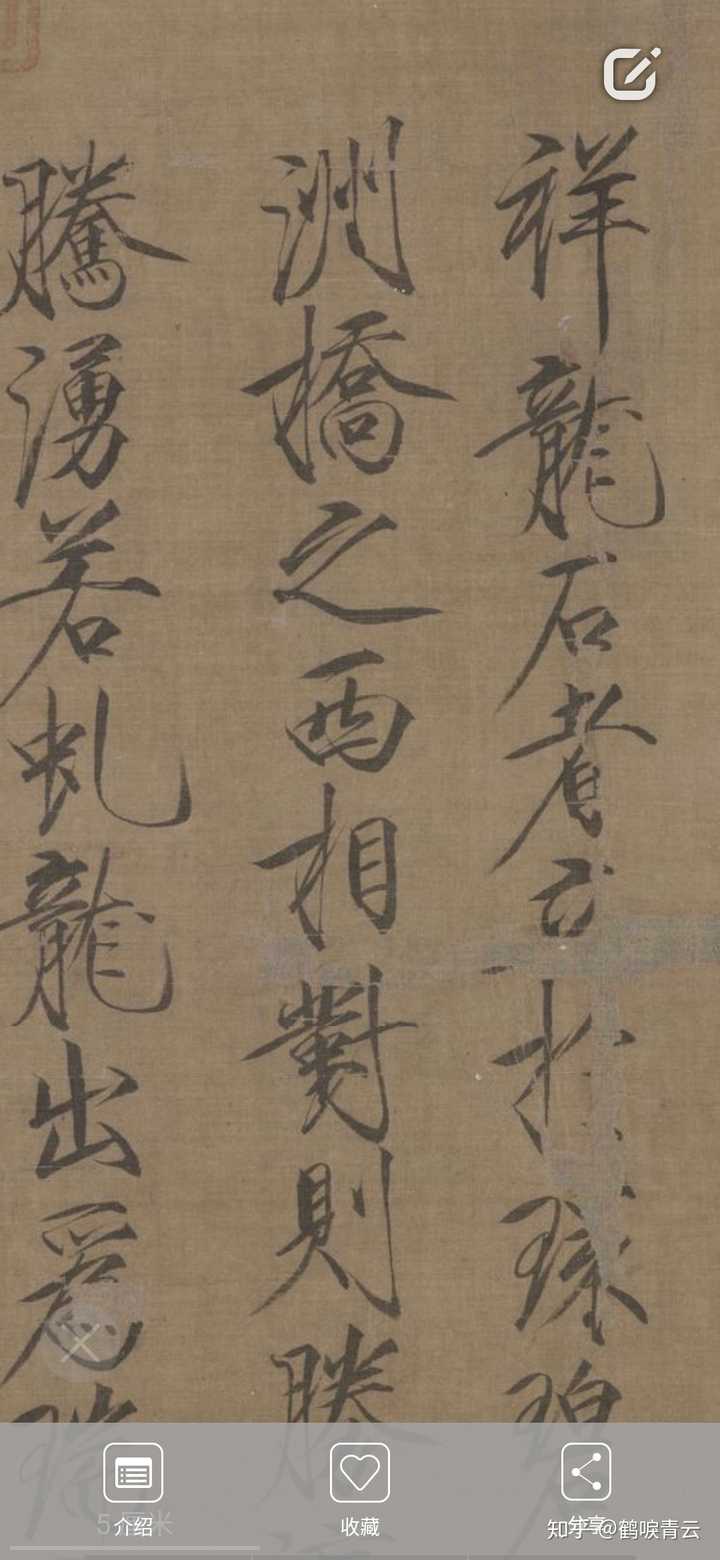 祥龍石者立於環碧
洲橋之西相對則勝
騰湧若虬龍出為瑞
5厘米
介绍
收藏
分享
知乎 @鹤唳青云